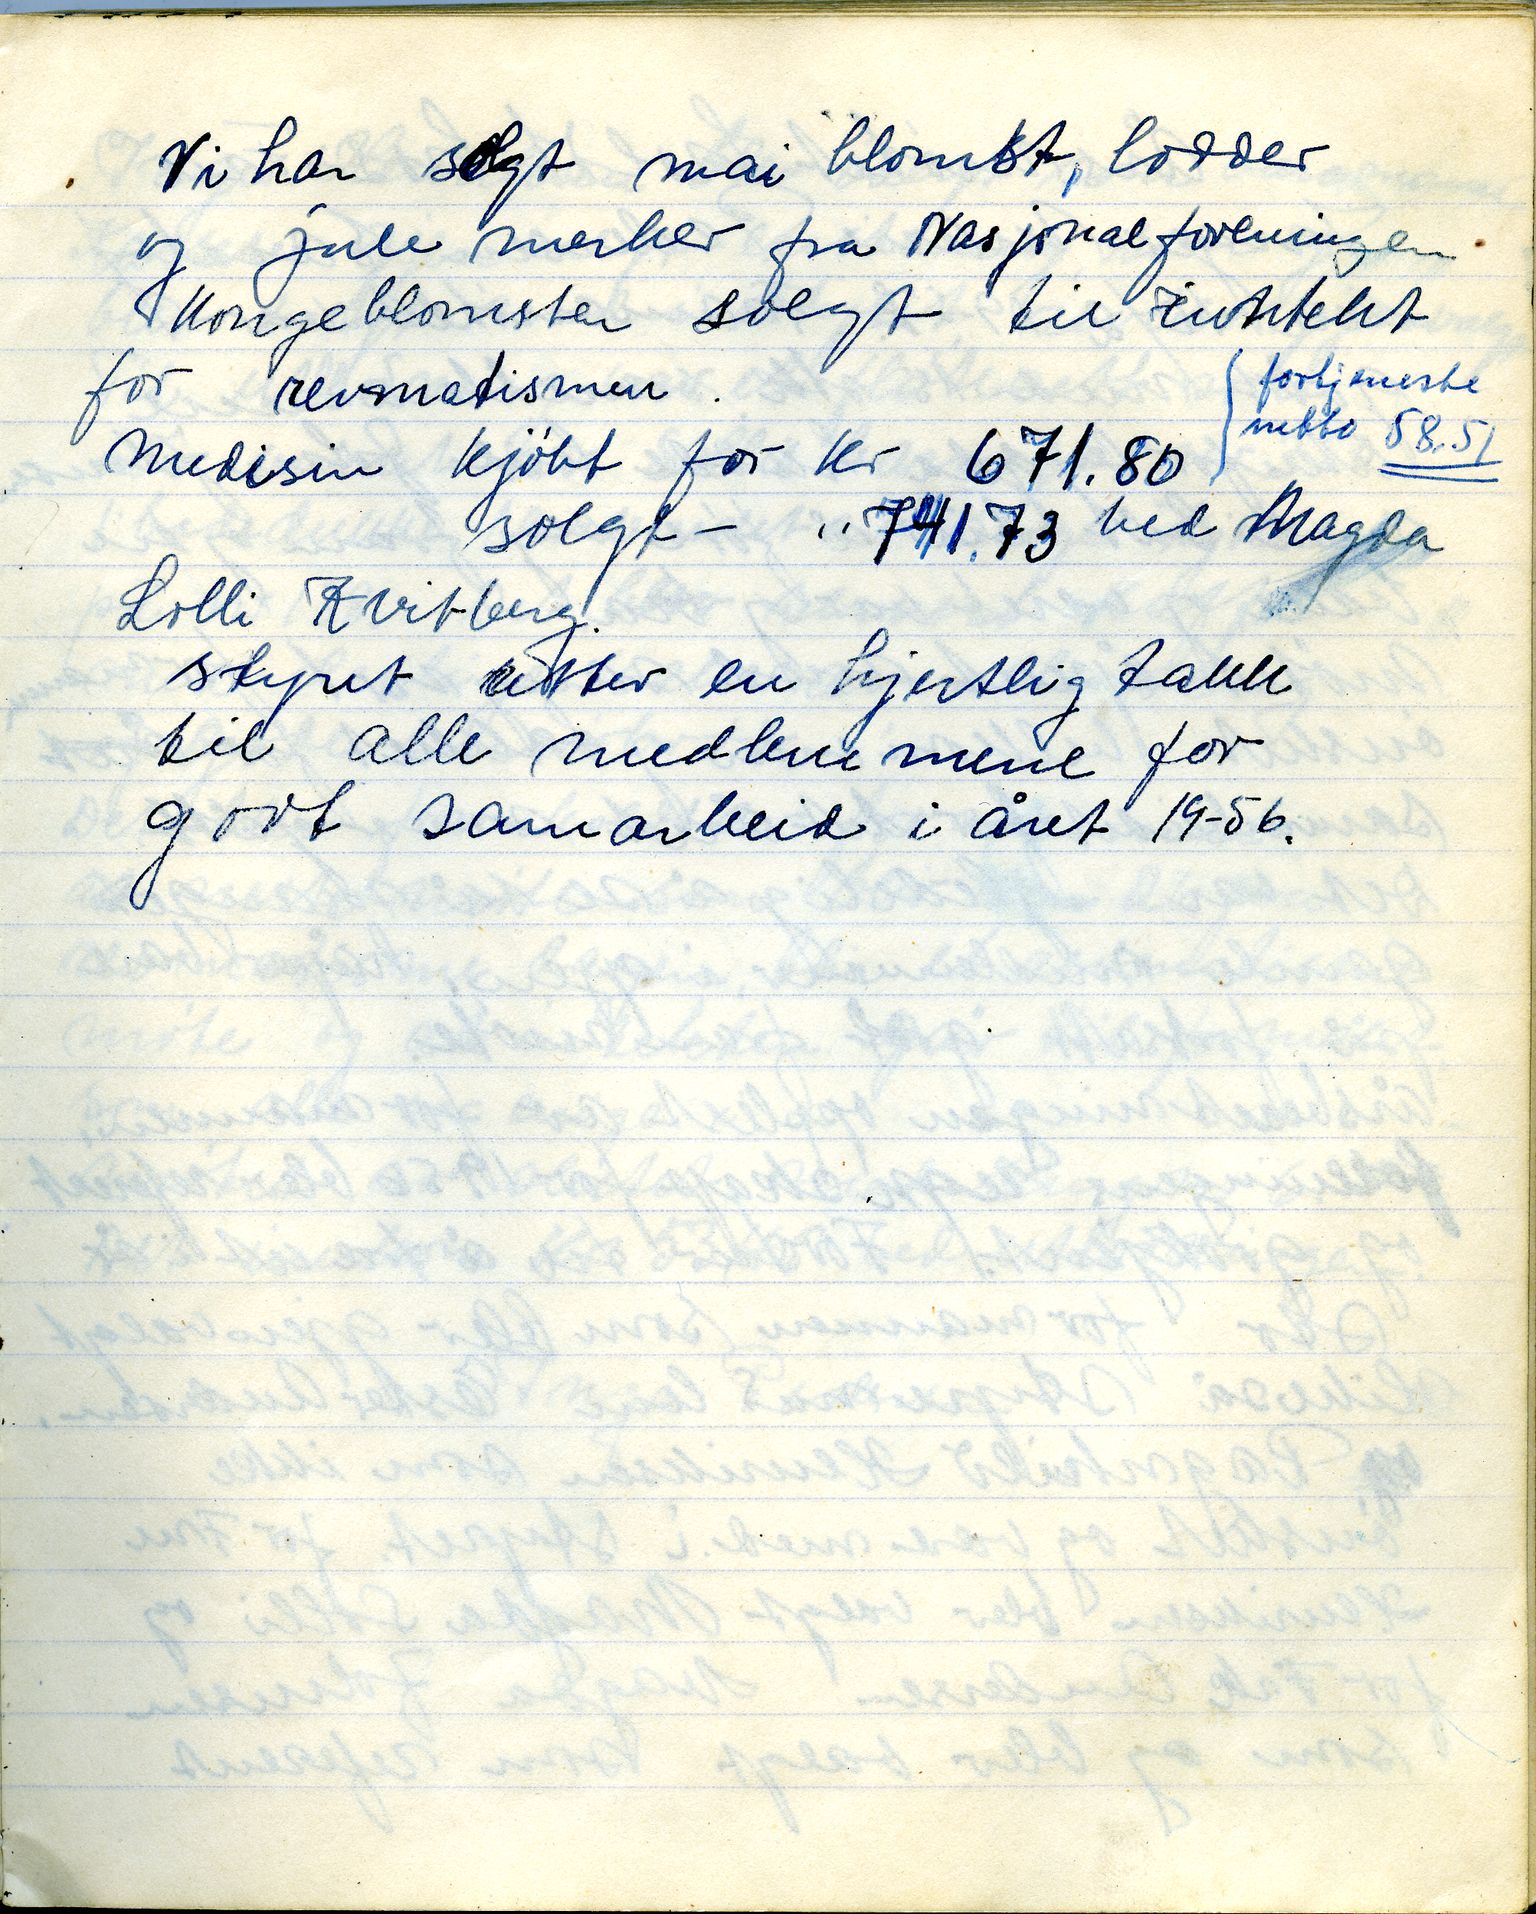 Vi har solgt mai blomst, lodder
og jule merker fra Nasjonalforeningen
Kongeblomster solgt til inntekt
for revmatismen.
Medisin kjöbt for kr 671.80
fortjeneste
netto 58.51
solgt - " 741.73 ved Magda
Lolli Kvitberg.
styret retter en hjertlig takk
til alle medlemmene for
godt samarbeid i året 19-56.